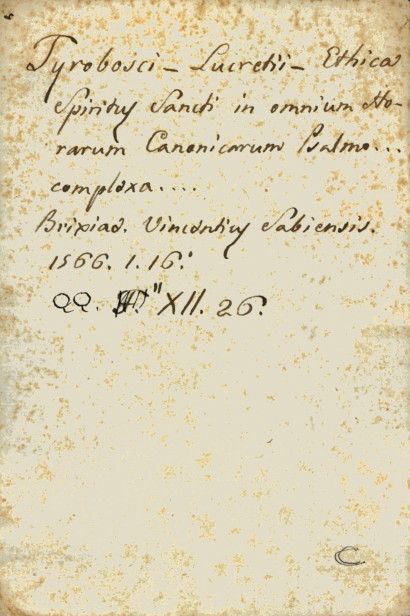 Tyrobosci - Lucretii - Ethica
Spiritus Sancti in omnium Ho-
rarum Canonicarum Psalmo...
complexa....
Brixiae. Vincentius Sabiensis.
1566. 1. 16.°
QQ. "XII. 26.
C